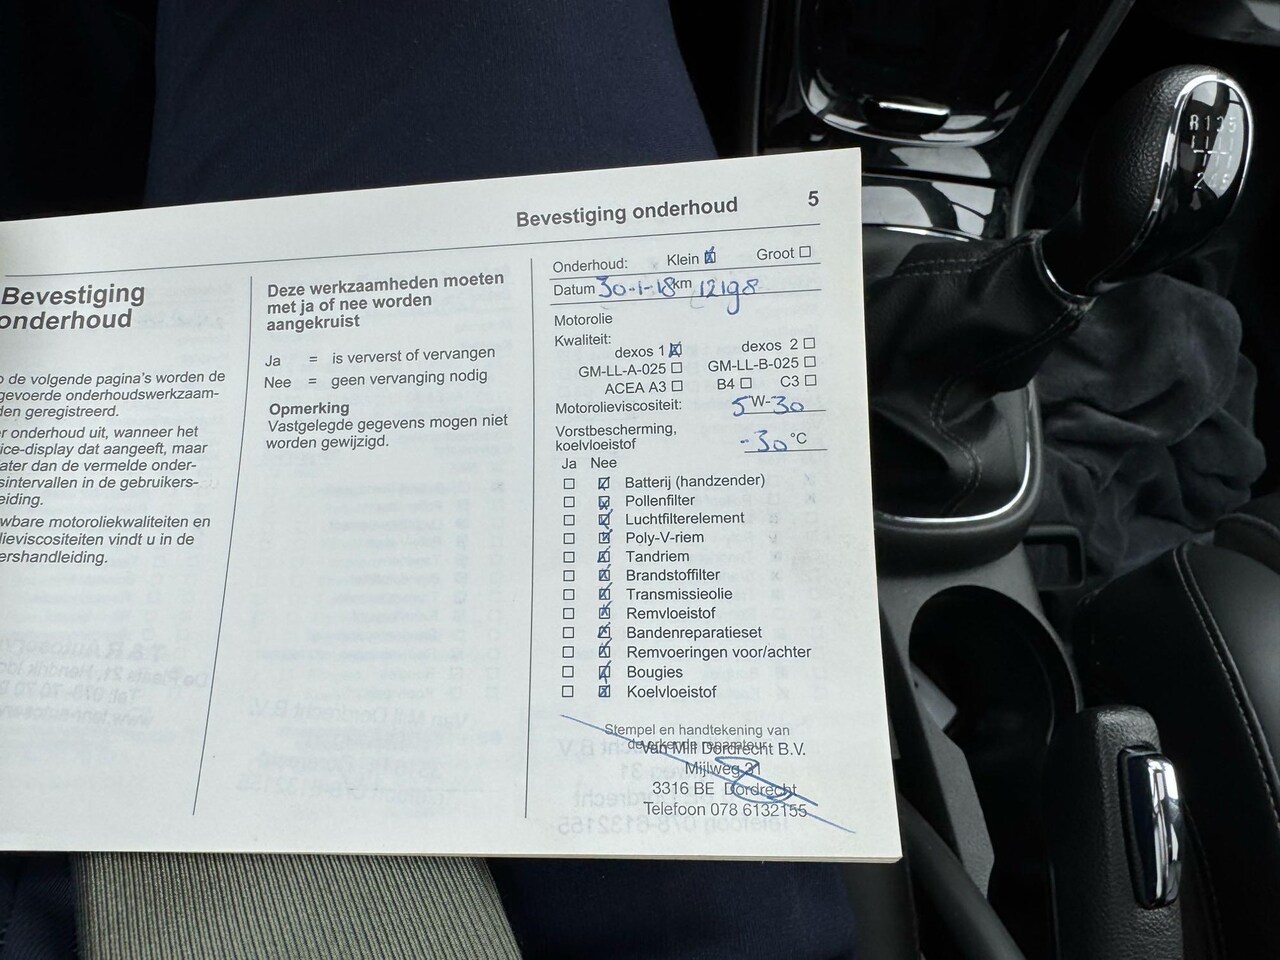 Bevestiging onderhoud 5
Bevestiging
onderhoud
de volgende pagina's worden de
gevoerde onderhoudswerkzaam-
den geregistreerd.
er onderhoud uit, wanneer het
ice-display dat aangeeft, maar
later dan de vermelde onder-
sintervallen in de gebruikers-
eiding.
wbare motoroliekwaliteiten en
lieviscositeiten vindt u in de
ershandleiding.
Deze werkzaamheden moeten
met ja of nee worden
aangekruist
Ja = is ververst of vervangen
Nee = geen vervanging nodig
Opmerking
Vastgelegde gegevens mogen niet
worden gewijzigd.
Onderhoud: Klein ☒ Groot ☐
Datum 30-1-18 km 12198
Motorolie
Kwaliteit:
dexos 1 ☒ dexos 2 ☐
GM-LL-A-025 ☐ GM-LL-B-025 ☐
ACEA A3 ☐ B4 ☐ C3 ☐
Motorolieviscositeit: 5W-30
Vorstbescherming,
koelvloeistof -30 °C
Ja Nee
☐ ☒ Batterij (handzender)
☐ ☒ Pollenfilter
☐ ☒ Luchtfilterelement
☐ ☒ Poly-V-riem
☐ ☒ Tandriem
☐ ☒ Brandstoffilter
☐ ☒ Transmissieolie
☐ ☒ Remvloeistof
☐ ☒ Bandenreparatieset
☐ ☒ Remvoeringen voor/achter
☐ ☒ Bougies
☐ ☒ Koelvloeistof
Stempel en handtekening van
de erkende reparateur
Van Mill Dordrecht B.V.
Mijlweg 31
3316 BE Dordrecht
Telefoon 078 6132155
R 1 3 5
2